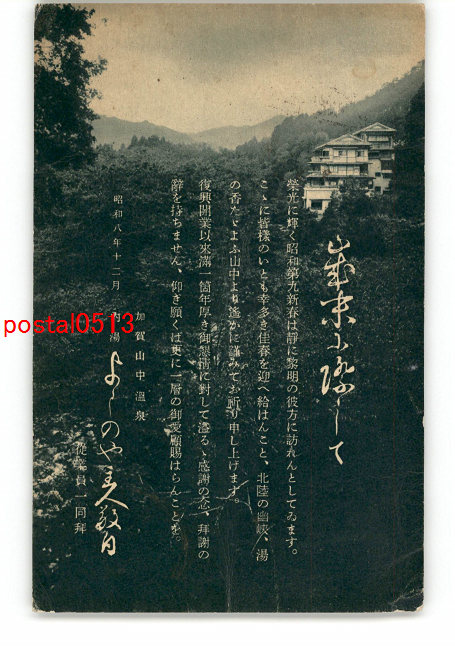 歳末に際して
榮光に輝く昭和第九新春は靜に黎明の彼方に訪れんとしてゐます。
こゝに皆樣のいとも幸多き佳春を迎へ給はんこと、北陸の幽峽、湯
の香たゞよふ山中より遙かに謹みてお祈り申し上げます。
復興開業以來滿一箇年厚き御懇情に對して溢るゝ感謝の念、拜謝の
辭を持ちません、仰ぎ願くば更に一層の御愛顧賜はらんことを。
昭和八年十二月
加賀山中溫泉
內湯
よしのや主人敬白
從業員一同拜
postal0513